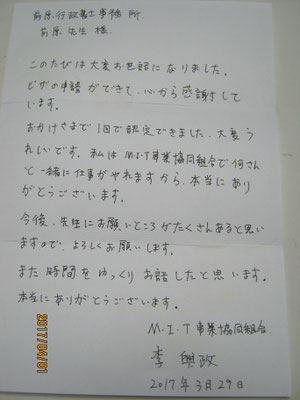 前原行政書士事務所
前原先生様
このたびは大変お世話になりました。
ビザの申請ができて、心から感謝して
います。
おかげさまで1回で認定できました、大変う
れしいです。私はM.I.T事業協同組合で何さん
と一緒に仕事がやれますから、本当にあり
がとうございます。
今後、先生にお願いところがたくさんあると思い
ますので、よろしくお願いします。
また時間をゆっくりお話したと思います。
本当にありがとうございます。
M.I.T事業協同組合
李 興政
2017年3月29日
2017/04/01